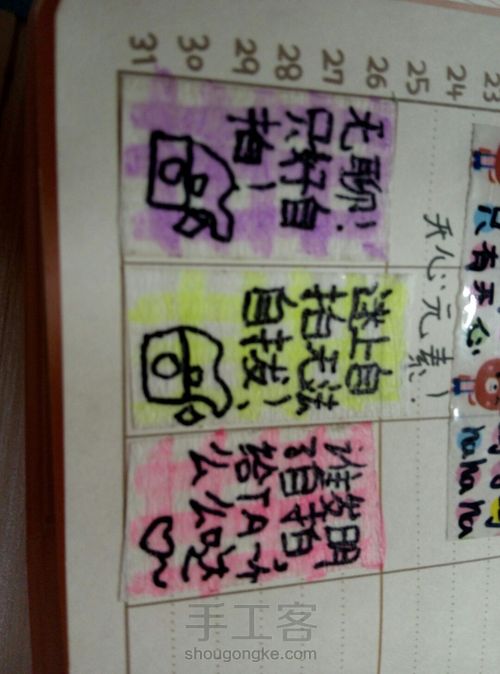 23
24
25
26
27
28
29
30
31
只有开心
hahaha
开心元素!
无聊!
只好自
拍!
迷上自
拍无法
自拔!
谁发明
了自拍,
给TA小
么么哒
♡~
手工客
shougongke.com